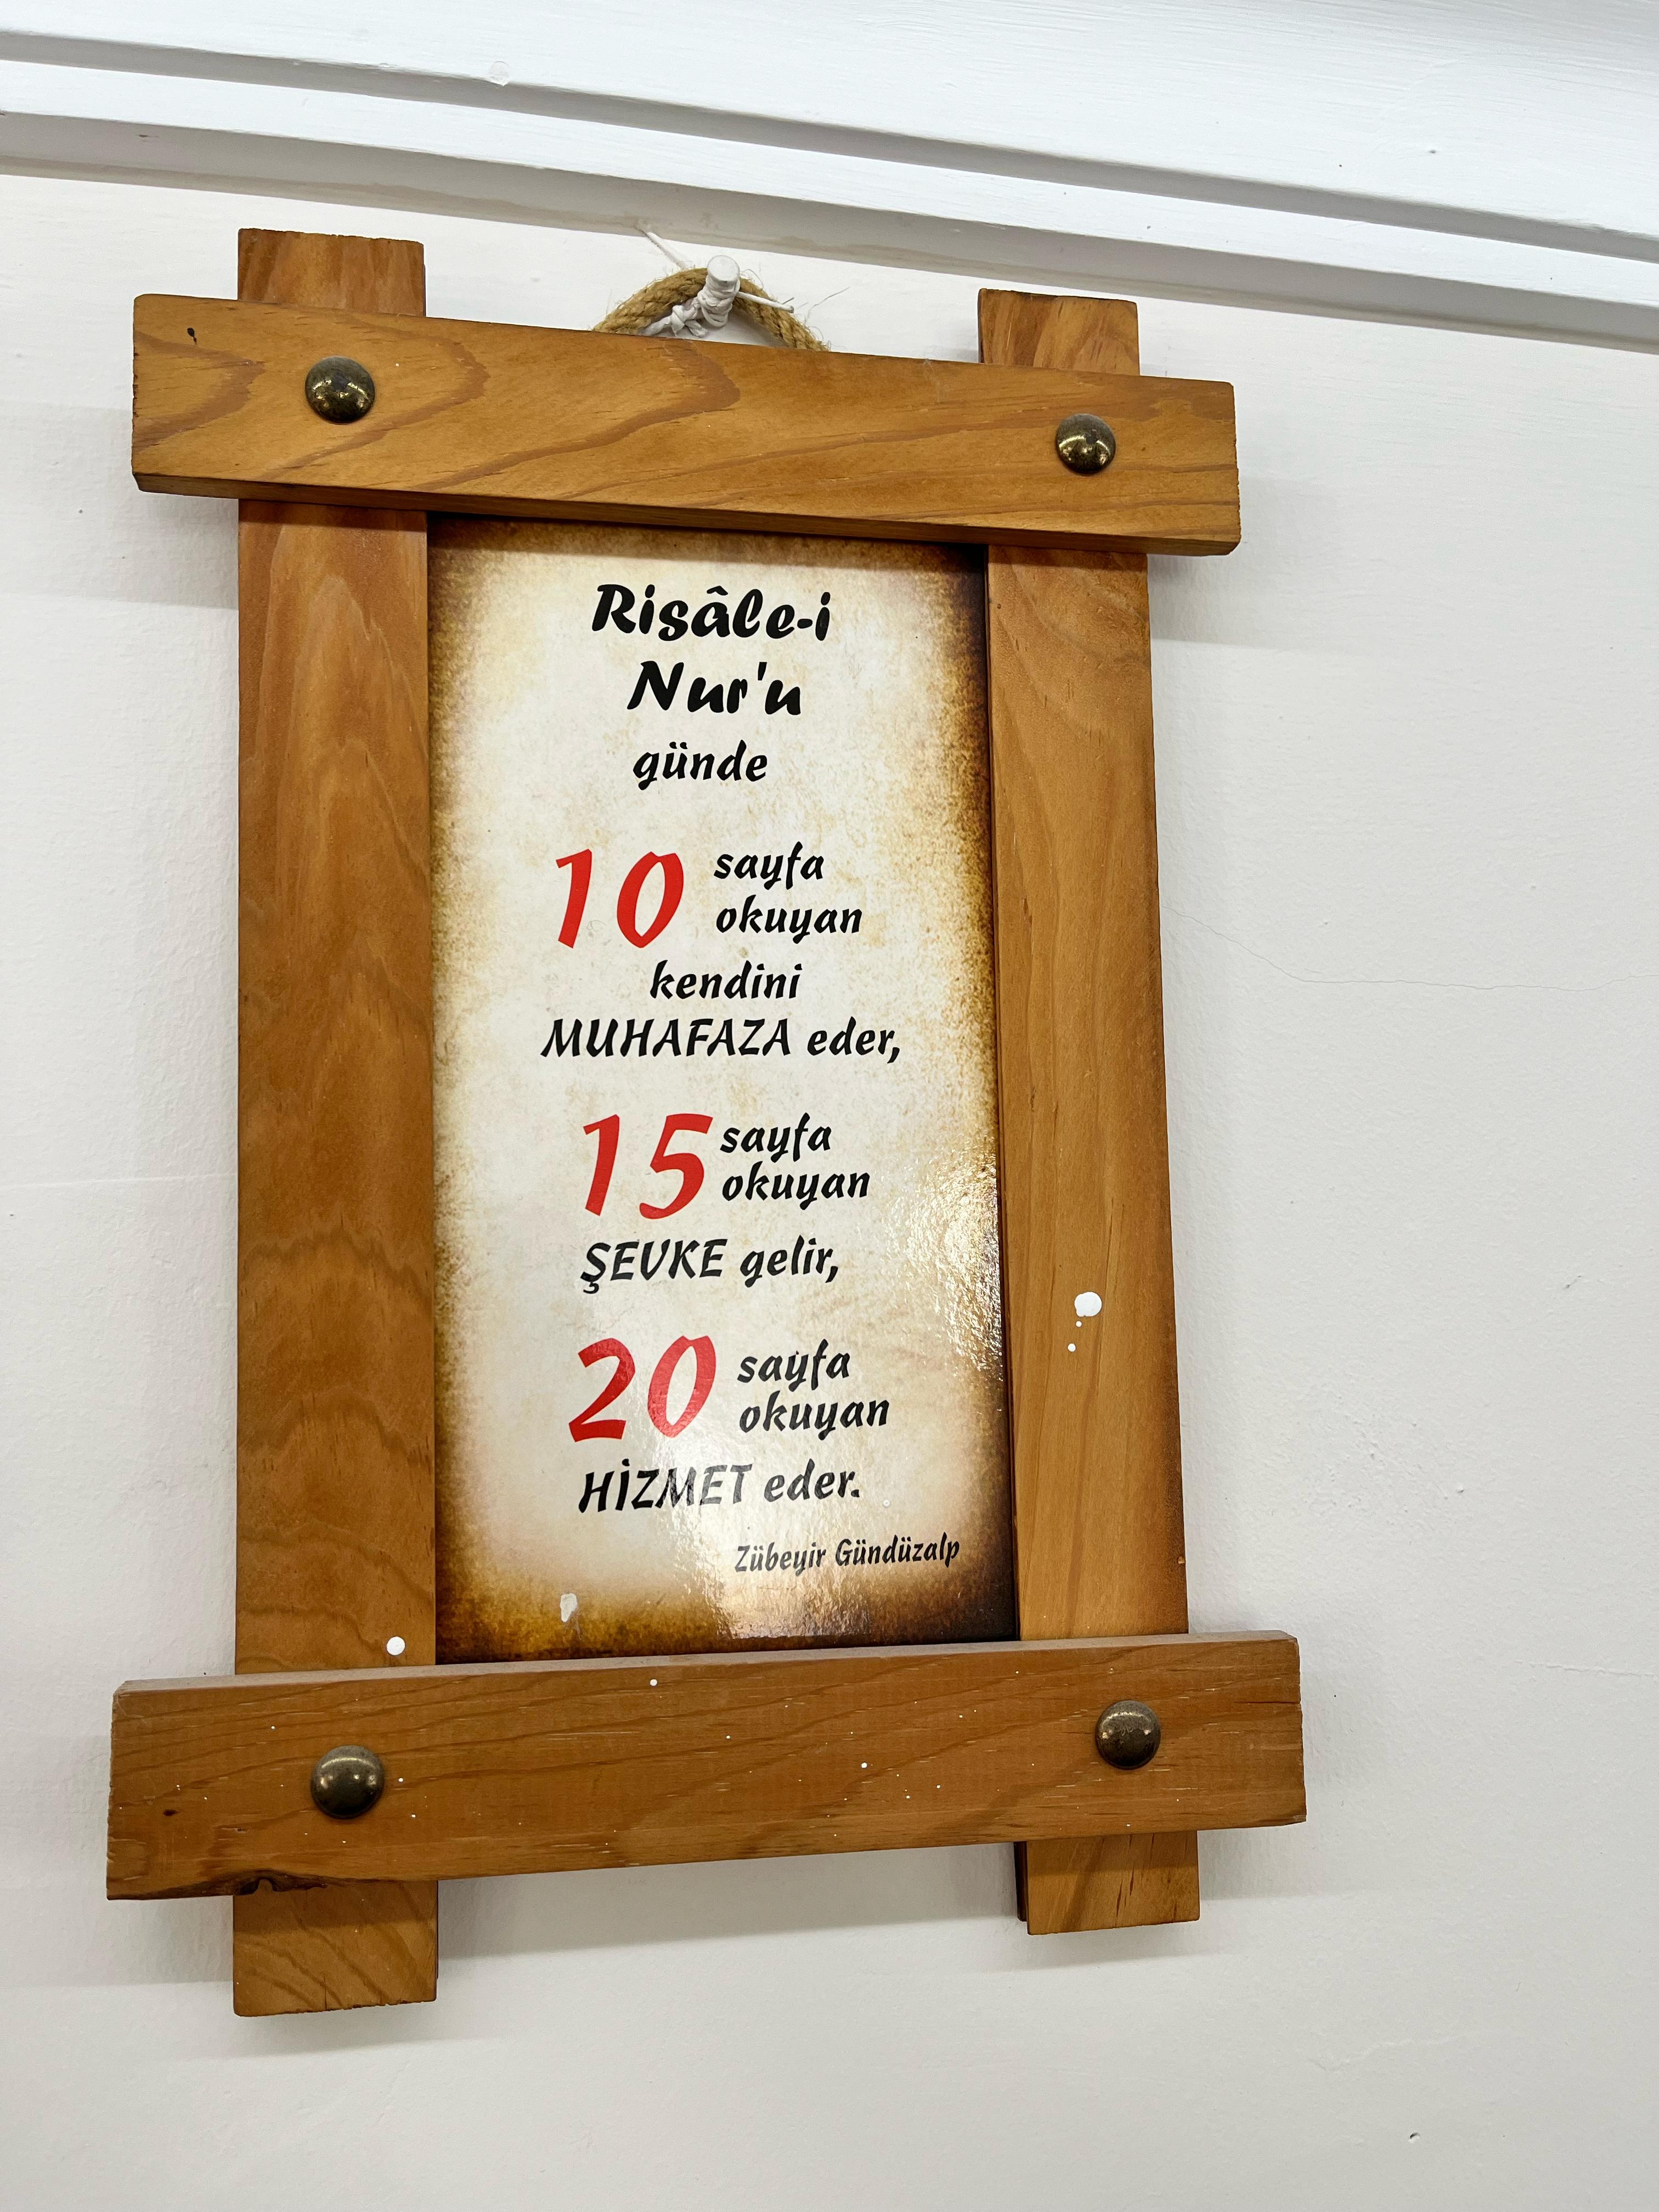 Risâle-i
Nur'u
günde
10 sayfa
okuyan
kendini
MUHAFAZA eder,
15 sayfa
okuyan
ŞEVKE gelir,
20 sayfa
okuyan
HİZMET eder.
Zübeyir Gündüzalp